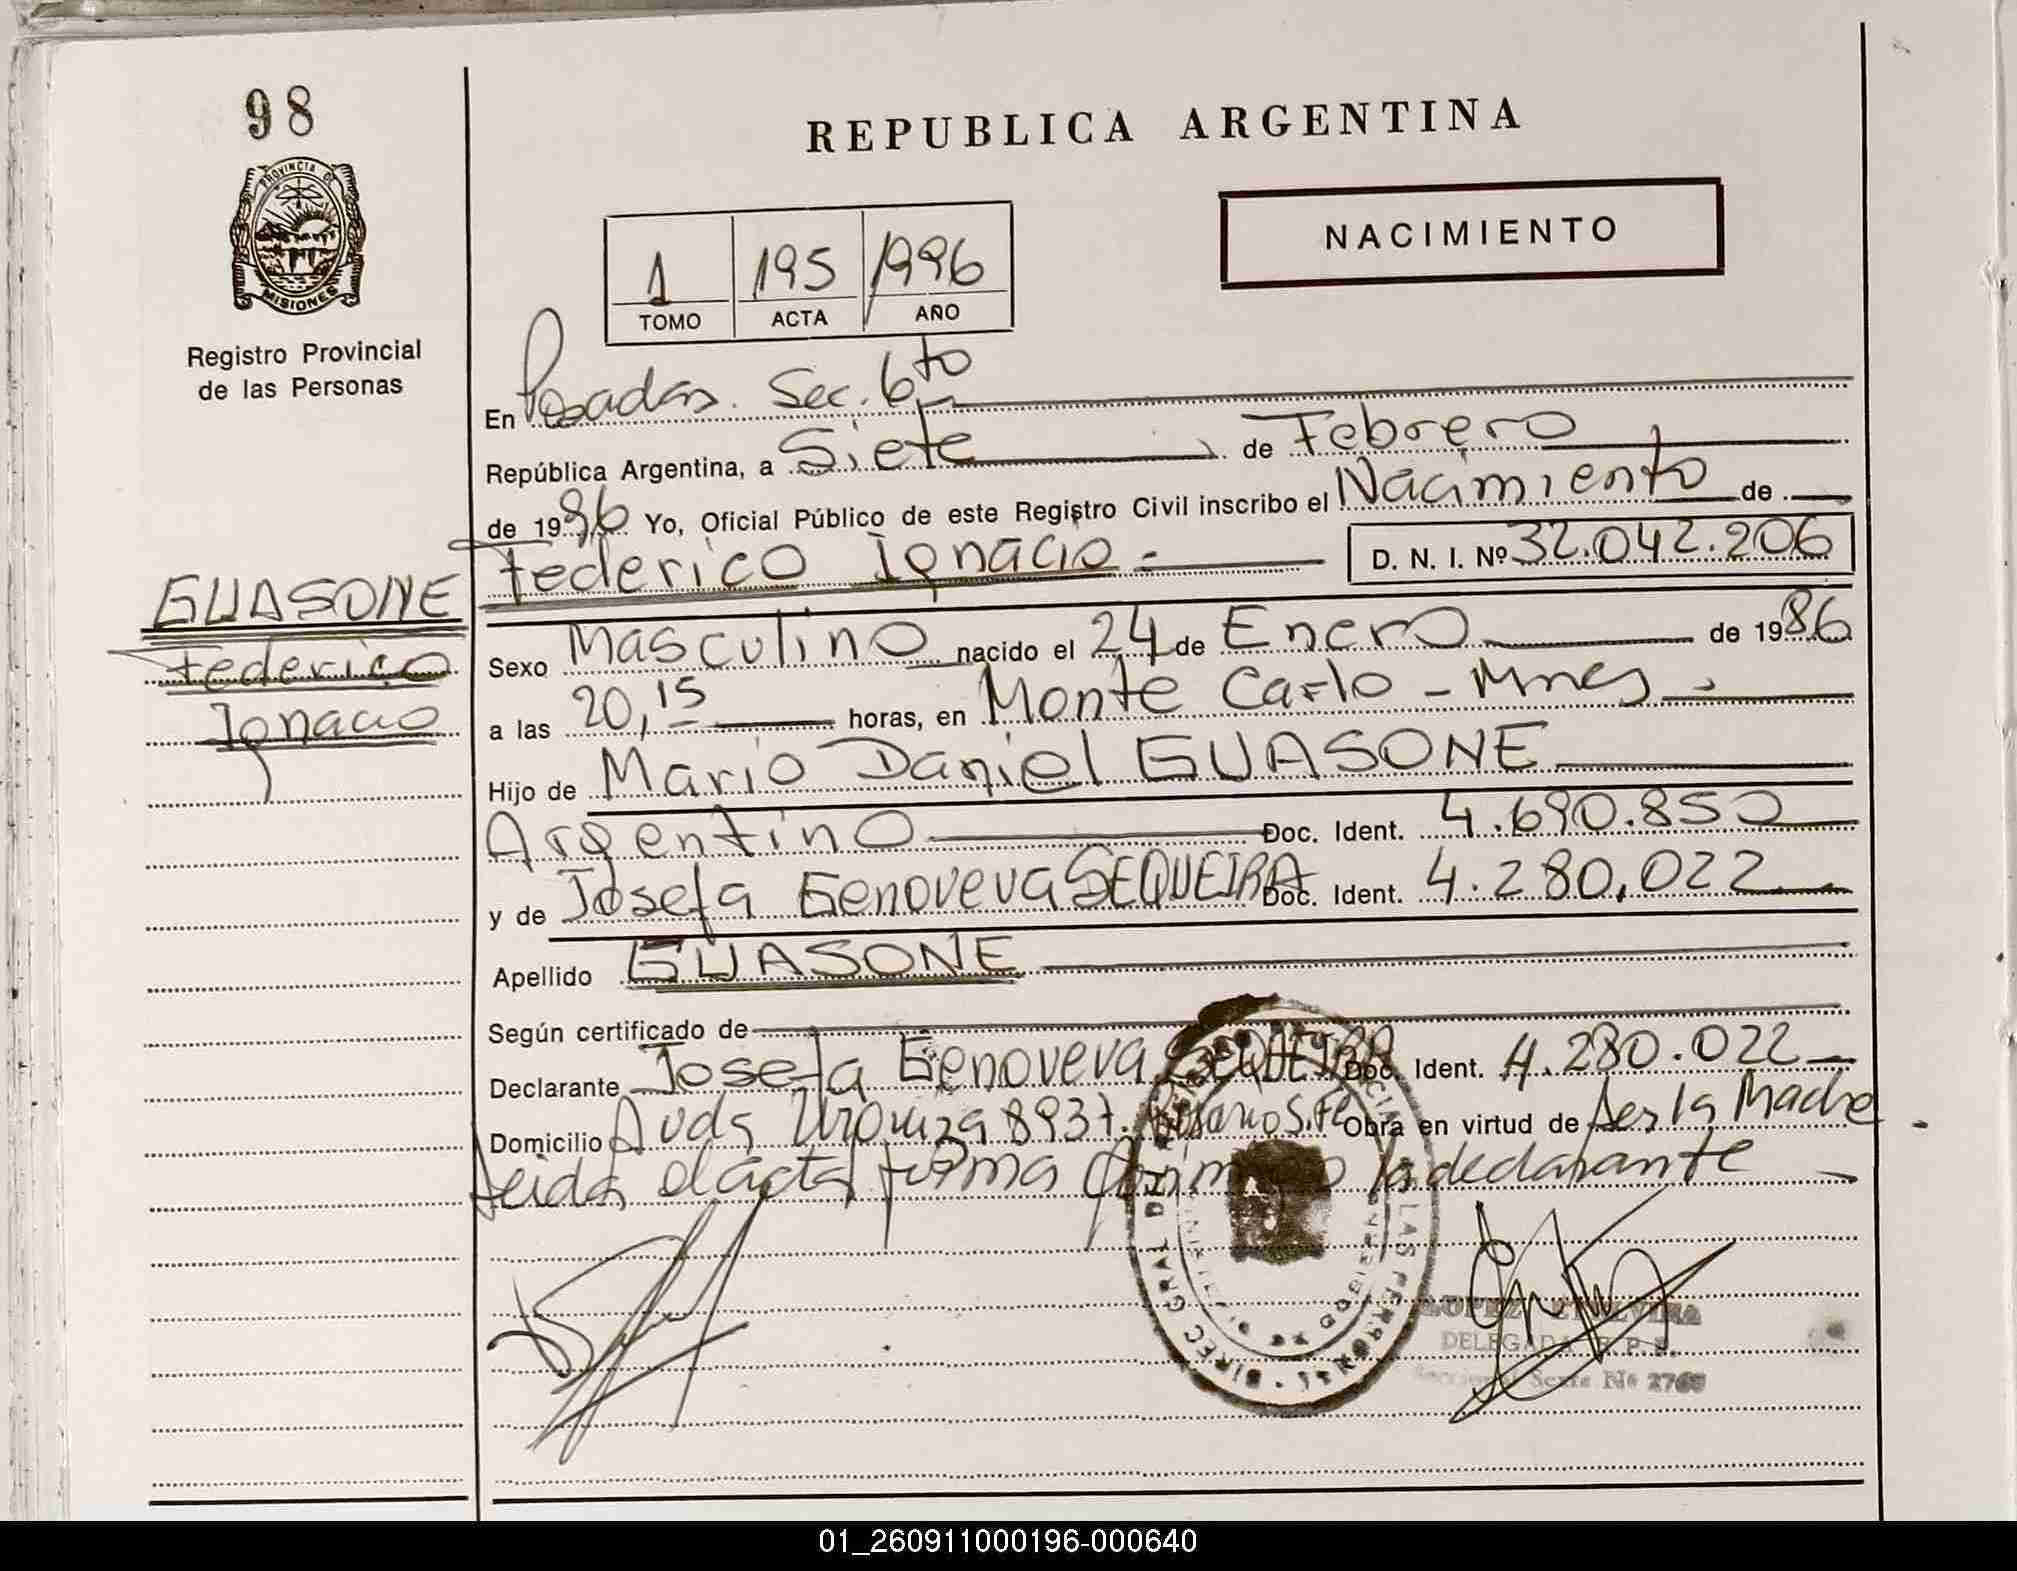 98
PROVINCIA DE
MISIONES
Registro Provincial
de las Personas
REPUBLICA ARGENTINA
NACIMIENTO
1 195 1996
TOMO ACTA AÑO
En Posadas. Sec. 6to
República Argentina, a Siete de Febrero
de 1996 Yo, Oficial Público de este Registro Civil inscribo el Nacimiento de
Federico Ignacio D. N. I. Nº 32.042.206
GUASONE
Federico
Ignacio
Sexo Masculino nacido el 24 de Enero de 1986
a las 20,15 horas, en Monte Carlo - Mnes
Hijo de Mario Daniel GUASONE
Argentino Doc. Ident. 4.690.850
y de Josefa Genoveva SEQUEIRA Doc. Ident. 4.280.022
Apellido GUASONE
Según certificado de
Declarante Josefa Genoveva SEQUEIRA Doc. Ident. 4.280.022
Domicilio Avda 8937. Rosario S.Fe Obra en virtud de ser la Madre
Leida el acta firma la declarante
DIREC GRAL D LAS PERSONAS
DELEGADA R.P.P.
Sexta Nº 2765
01_260911000196-000640